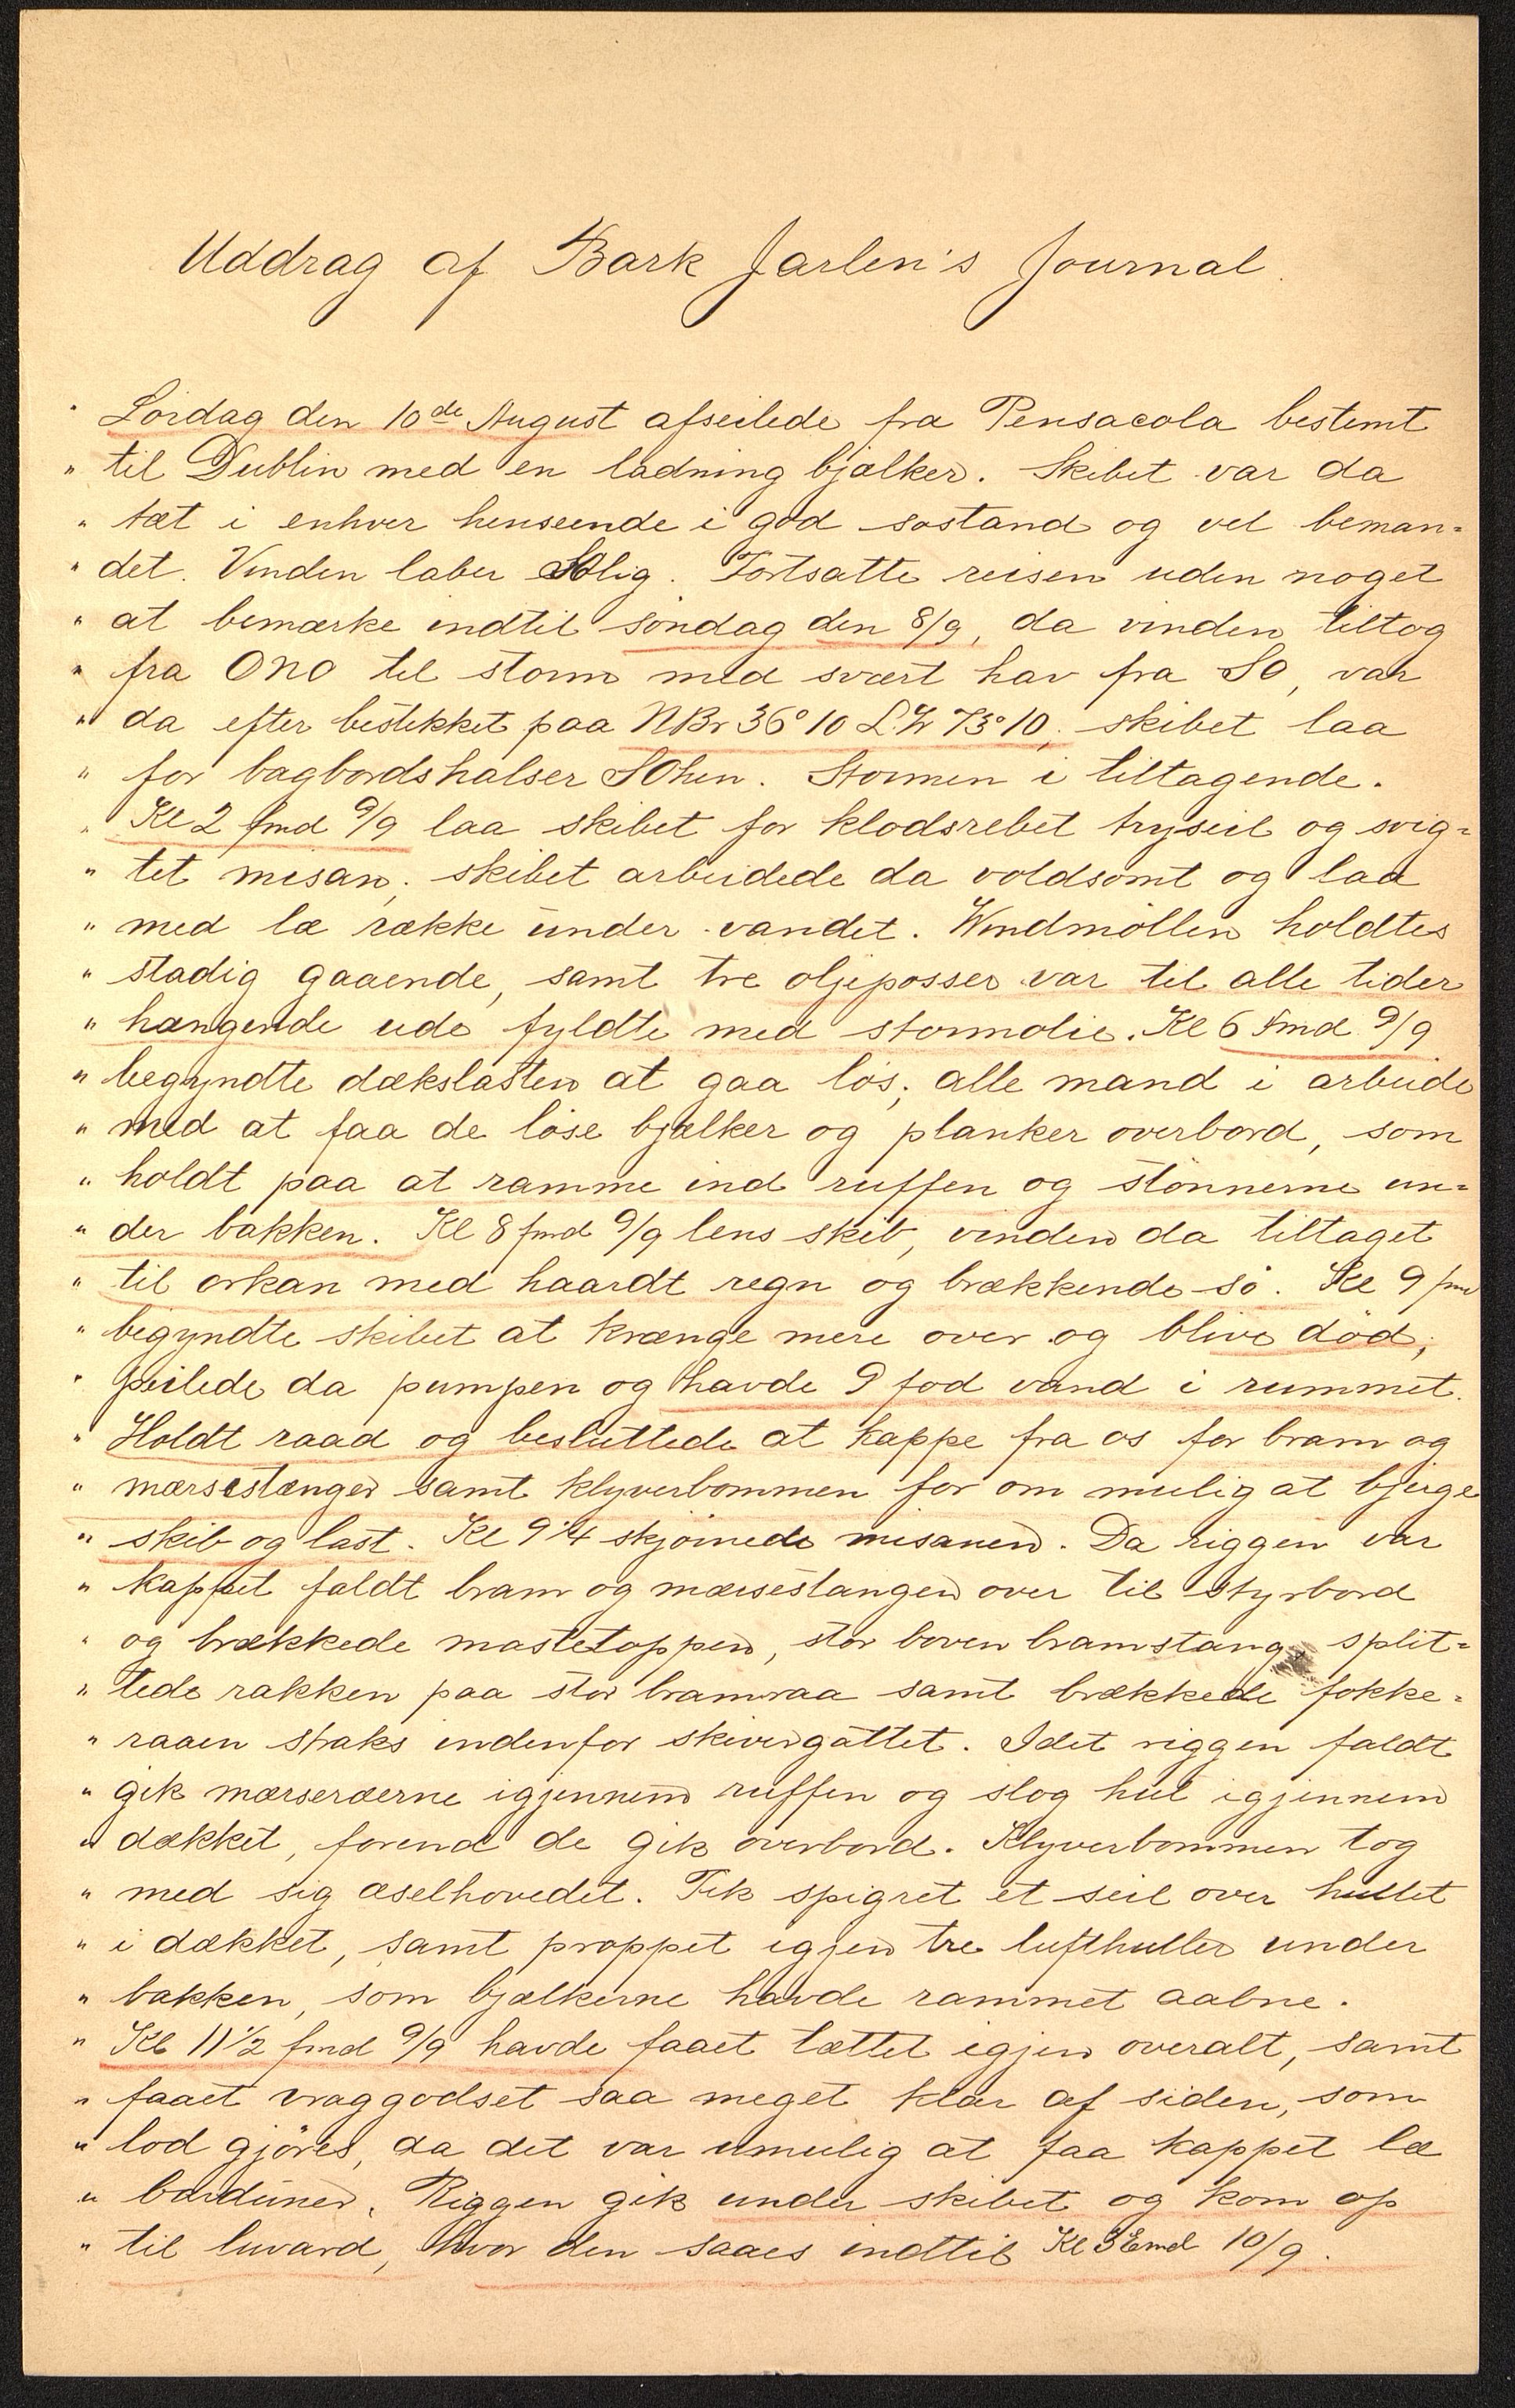 Uddrag af Bark Jarlen's Journal.
" Lördag den 10de August afseilede fra Pensacola bestemt
" til Dublin med en ladning bjælker. Skibet var da
" tæt i enhver henseende i god söstand og vel beman=
" det. Vinden laber SOlig. Fortsatte reisen uden noget
" at bemærke indtil söndag den 8/9, da vinden tiltog
" fra ONO til storm med svært hav fra SO, var
" da efter bestikket paa NBr 36° 10 L.W 73° 10, skibet laa
" for bagbordshalser SOhen. Stormen i tiltagende.
" Kl 2 fmd 9/9 laa skibet for klodsrebet tryseil og svig=
" tet misan; skibet arbeidede da voldsomt og laa
" med læ række under vandet. Windmöllen holdtes
" stadig gaaende, samt tre oljeposser var til alle tider
" hængende ude fyldte med stormolie. Kl 6 fmd 9/9
" begyndte dækslasten at gaa lös; alle mand i arbeide
" med at faa de löse bjælker og planker overbord, som
" holdt paa at ramme ind ruffen og stönnerne un=
" der bakken. Kl 8 fmd 9/9 lens skib, vinden da tiltaget
" til orkan med haardt regn og brækkende sö. Kl 9 fmd
" begyndte skibet at krænge mere over og blive död;
" peilede da pumpen og havde 9 fod vand i rummet.
" Holdt raad og besluttede at kappe fra os for bram og
" mærsestænger samt klyverbommen for om mulig at bjerge
" skib og last. Kl 9 1/4 skjörnede misanen. Da riggen var
" kappet faldt bram og mærsestangen over til styrbord
" og brækkede mastetoppen, stor boven bramstang, split=
" tede rakken paa stor bramraa samt brækkede fokke=
" raaen straks indenfor skivegattet. Idet riggen faldt
" gik mærseræerne igjennem ruffen og slog hul igjennem
" dækket, forend de gik overbord. Klyverbommen tog
" med sig æselhovedet. Fik spigret et seil over hullet
" i dækket, samt proppet igjen tre lufthuller under
" bakken, som bjælkerne havde rammet aabne.
" Kl 11 1/2 fmd 9/9 havde faaet tættet igjen overalt, samt
" faaet vraggodset saa meget klar af siden, som
" lod gjöres, da det var umulig at faa kappet læ
" barduner. Riggen gik under skibet og kom op
" til luvard, hvor den saaes indtil Kl 3 Emd 10/9.